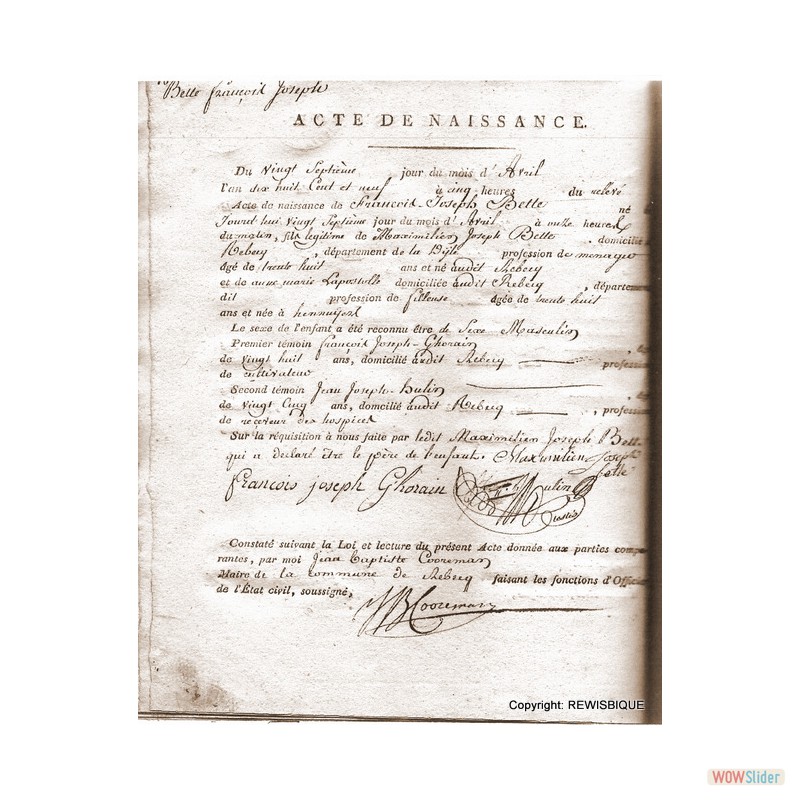 Belle françois Joseph
ACTE DE NAISSANCE.
Du Vingt Septième jour du mois d' Avril
l'an dix huit Cent et neuf à cinq heures du relevé
Acte de naissance de François Joseph Belle né
Jourd hui Vingt Septième jour du mois d' Avril à onze heures
du matin, fils légitime de Maximilien Joseph Belle, domicilié à
Rebecq, département de la Dÿle profession de menage
âgé de trente huit ans et né audit Rebecq
et de anne marie Lapostolle domiciliée audit Rebecq, départem
dit profession de fileuse âgée de trente huit
ans et née à hennuyeres
Le sexe de l'enfant a été reconnu être de Sexe Masculin
Premier témoin françois Joseph Ghorain
de vingt huit ans, domicilié audit Rebecq, profession
de cultivateur
Second témoin Jean Joseph hulin
de vingt Cinq ans, domicilié audit Rebecq, profession
de receveur des hospices
Sur la réquisition à nous faite par ledit Maximilien Joseph Belle
qui a déclaré être le père de l'enfant. Maximilien Joseph
belle
françois joseph Ghorain hulin
Constaté suivant la Loi et lecture du présent Acte donnée aux parties compa
rantes, par moi Jean Baptiste Cooreman
Maire de la commune de Rebecq faisant les fonctions d'Officier
de l'État civil, soussigné,
JB Cooreman
Copyright: REWISBIQUE
WOWSlider